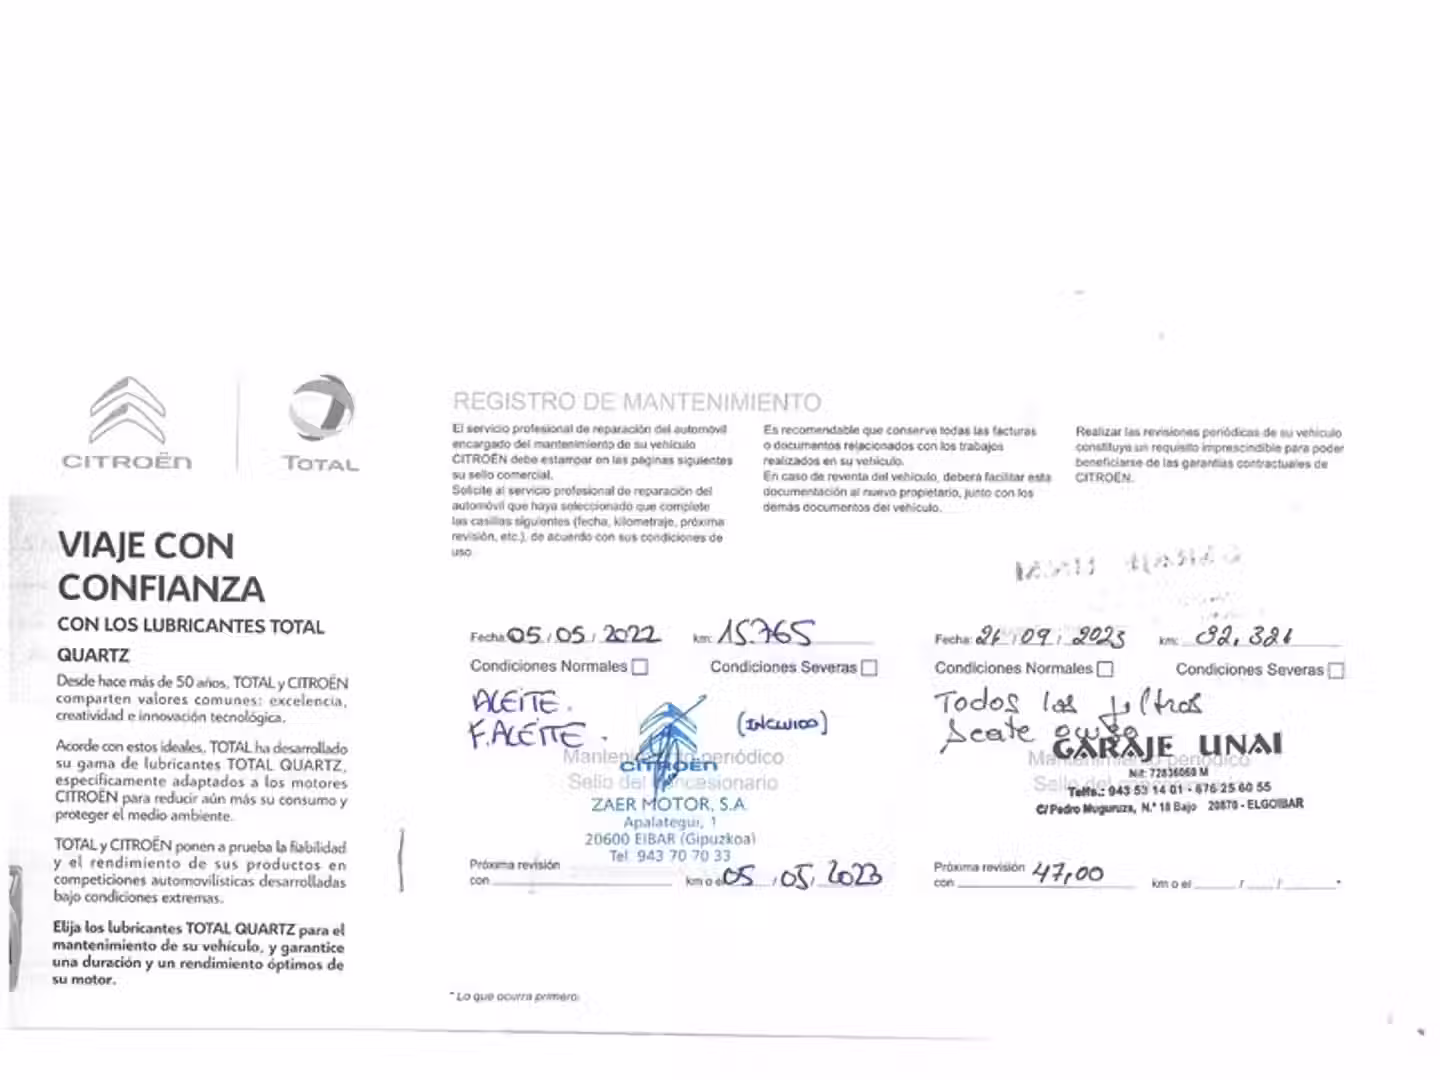 CITROËN
TOTAL
VIAJE CON
CONFIANZA
CON LOS LUBRICANTES TOTAL
QUARTZ
Desde hace más de 50 años, TOTAL y CITROËN
comparten valores comunes: excelencia,
creatividad e innovación tecnológica.
Acorde con estos ideales, TOTAL ha desarrollado
su gama de lubricantes TOTAL QUARTZ,
específicamente adaptados a los motores
CITROËN para reducir aún más su consumo y
proteger el medio ambiente.
TOTAL y CITROËN ponen a prueba la fiabilidad
y el rendimiento de sus productos en
competiciones automovilísticas desarrolladas
bajo condiciones extremas.
Elija los lubricantes TOTAL QUARTZ para el
mantenimiento de su vehículo, y garantice
una duración y un rendimiento óptimos de
su motor.
REGISTRO DE MANTENIMIENTO
El servicio profesional de reparación del automóvil
encargado del mantenimiento de su vehículo
CITROËN debe estampar en las páginas siguientes
su sello comercial.
Solicite al servicio profesional de reparación del
automóvil que haya seleccionado que complete
las casillas siguientes (fecha, kilometraje, próxima
revisión, etc.), de acuerdo con sus condiciones de
uso.
Es recomendable que conserve todas las facturas
o documentos relacionados con los trabajos
realizados en su vehículo.
En caso de reventa del vehículo, deberá facilitar esta
documentación al nuevo propietario, junto con los
demás documentos del vehículo.
Realizar las revisiones periódicas de su vehículo
constituye un requisito imprescindible para poder
beneficiarse de las garantías contractuales de
CITROËN.
Fecha: 05/05/2022 km: 15.765
Condiciones Normales Condiciones Severas
ACEITE.
F.ACEITE. (INCLUIDO)
Mantenimiento periódico
CITROËN
Sello del concesionario
ZAER MOTOR, S.A.
Apalategui, 1
20600 EIBAR (Gipuzkoa)
Tel. 943 70 70 33
Próxima revisión
con km o el 05/05/2023
Fecha: /09/2023 km: 32.321
Condiciones Normales Condiciones Severas
Todos los filtros
GARAJE UNAI
Mantenimiento periódico
Nif: 72836060 M
Sello del
Telfs.: 943 53 14 01 - 676 25 60 55
C/ Pedro Muguruza, N.º 18 Bajo 20870 - ELGOIBAR
Próxima revisión 47,00
con km o el / / *
* Lo que ocurra primero.